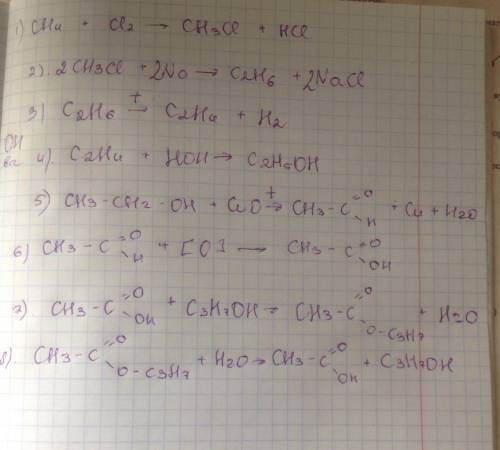 1) CH4 + Cl2 → CH3Cl + HCl
2). 2CH3Cl + 2Na → C2H6 + 2NaCl
3) C2H6 →(t) C2H4 + H2
OH
4). C2H4 + HOH → C2H5OH
5) CH3-CH2-OH + CuO →(t) CH3-C(=O)-H + Cu + H2O
6) CH3-C(=O)-H + [O] → CH3-C(=O)-OH
7) CH3-C(=O)-OH + C3H7OH → CH3-C(=O)-O-C3H7 + H2O
8). CH3-C(=O)-O-C3H7 + H2O → CH3-C(=O)-OH + C3H7OH